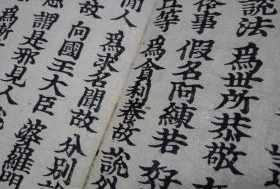 說法 為世所恭敬
俗事 假名阿練若 好
丘等 為貪利養故 說外
間人 為求名聞故 分別
故 向國王大臣 婆羅門
謂是邪見人